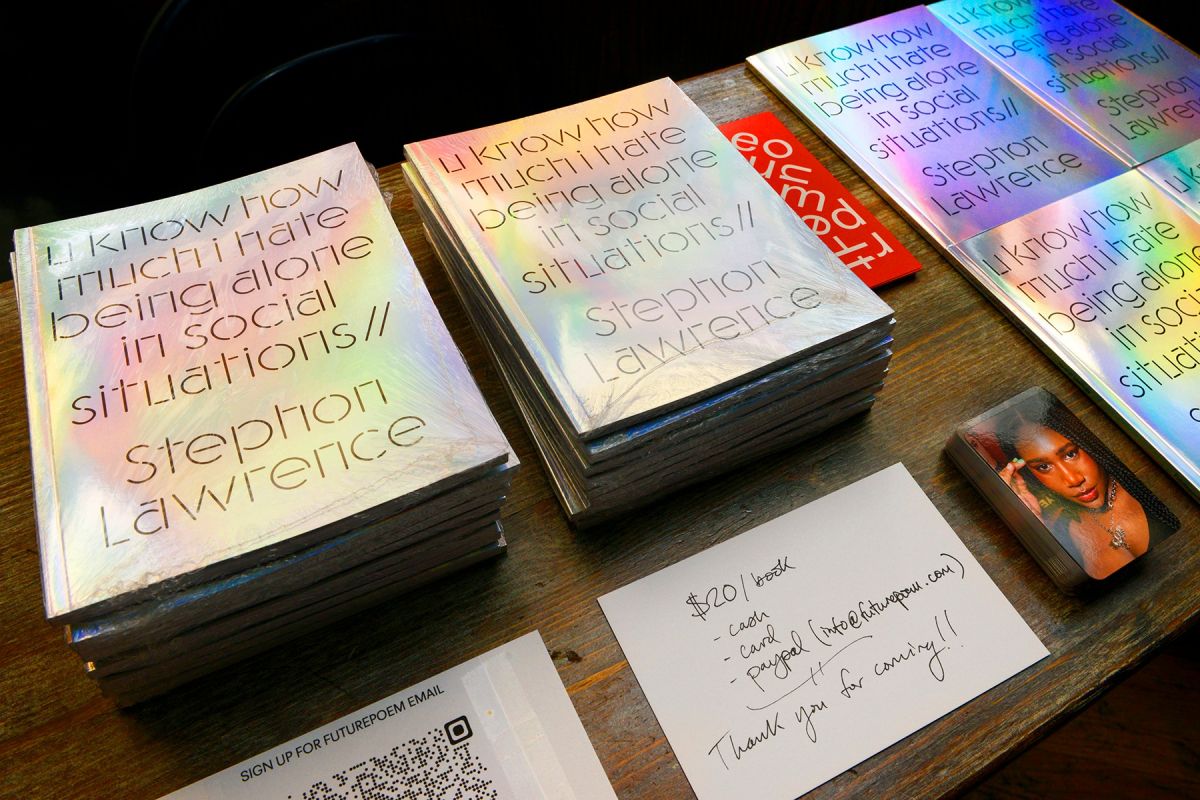 u know how
much i hate
being alone
in social
situations//
Stephon
Lawrence
u know how
much i hate
being alone
in social
situations//
Stephon
Lawrence
u know how
much i hate
being alone
in social
situations//
Stephon
Lawrence
u know how
much i hate
being alone
in social
situations//
Stephon
Lawrence
u know how
much i hate
being alone
in social
situations//
$20/book
- cash
- card
- paypal (info@futurepoem.com)
Thank you for coming!!
SIGN UP FOR FUTUREPOEM EMAIL